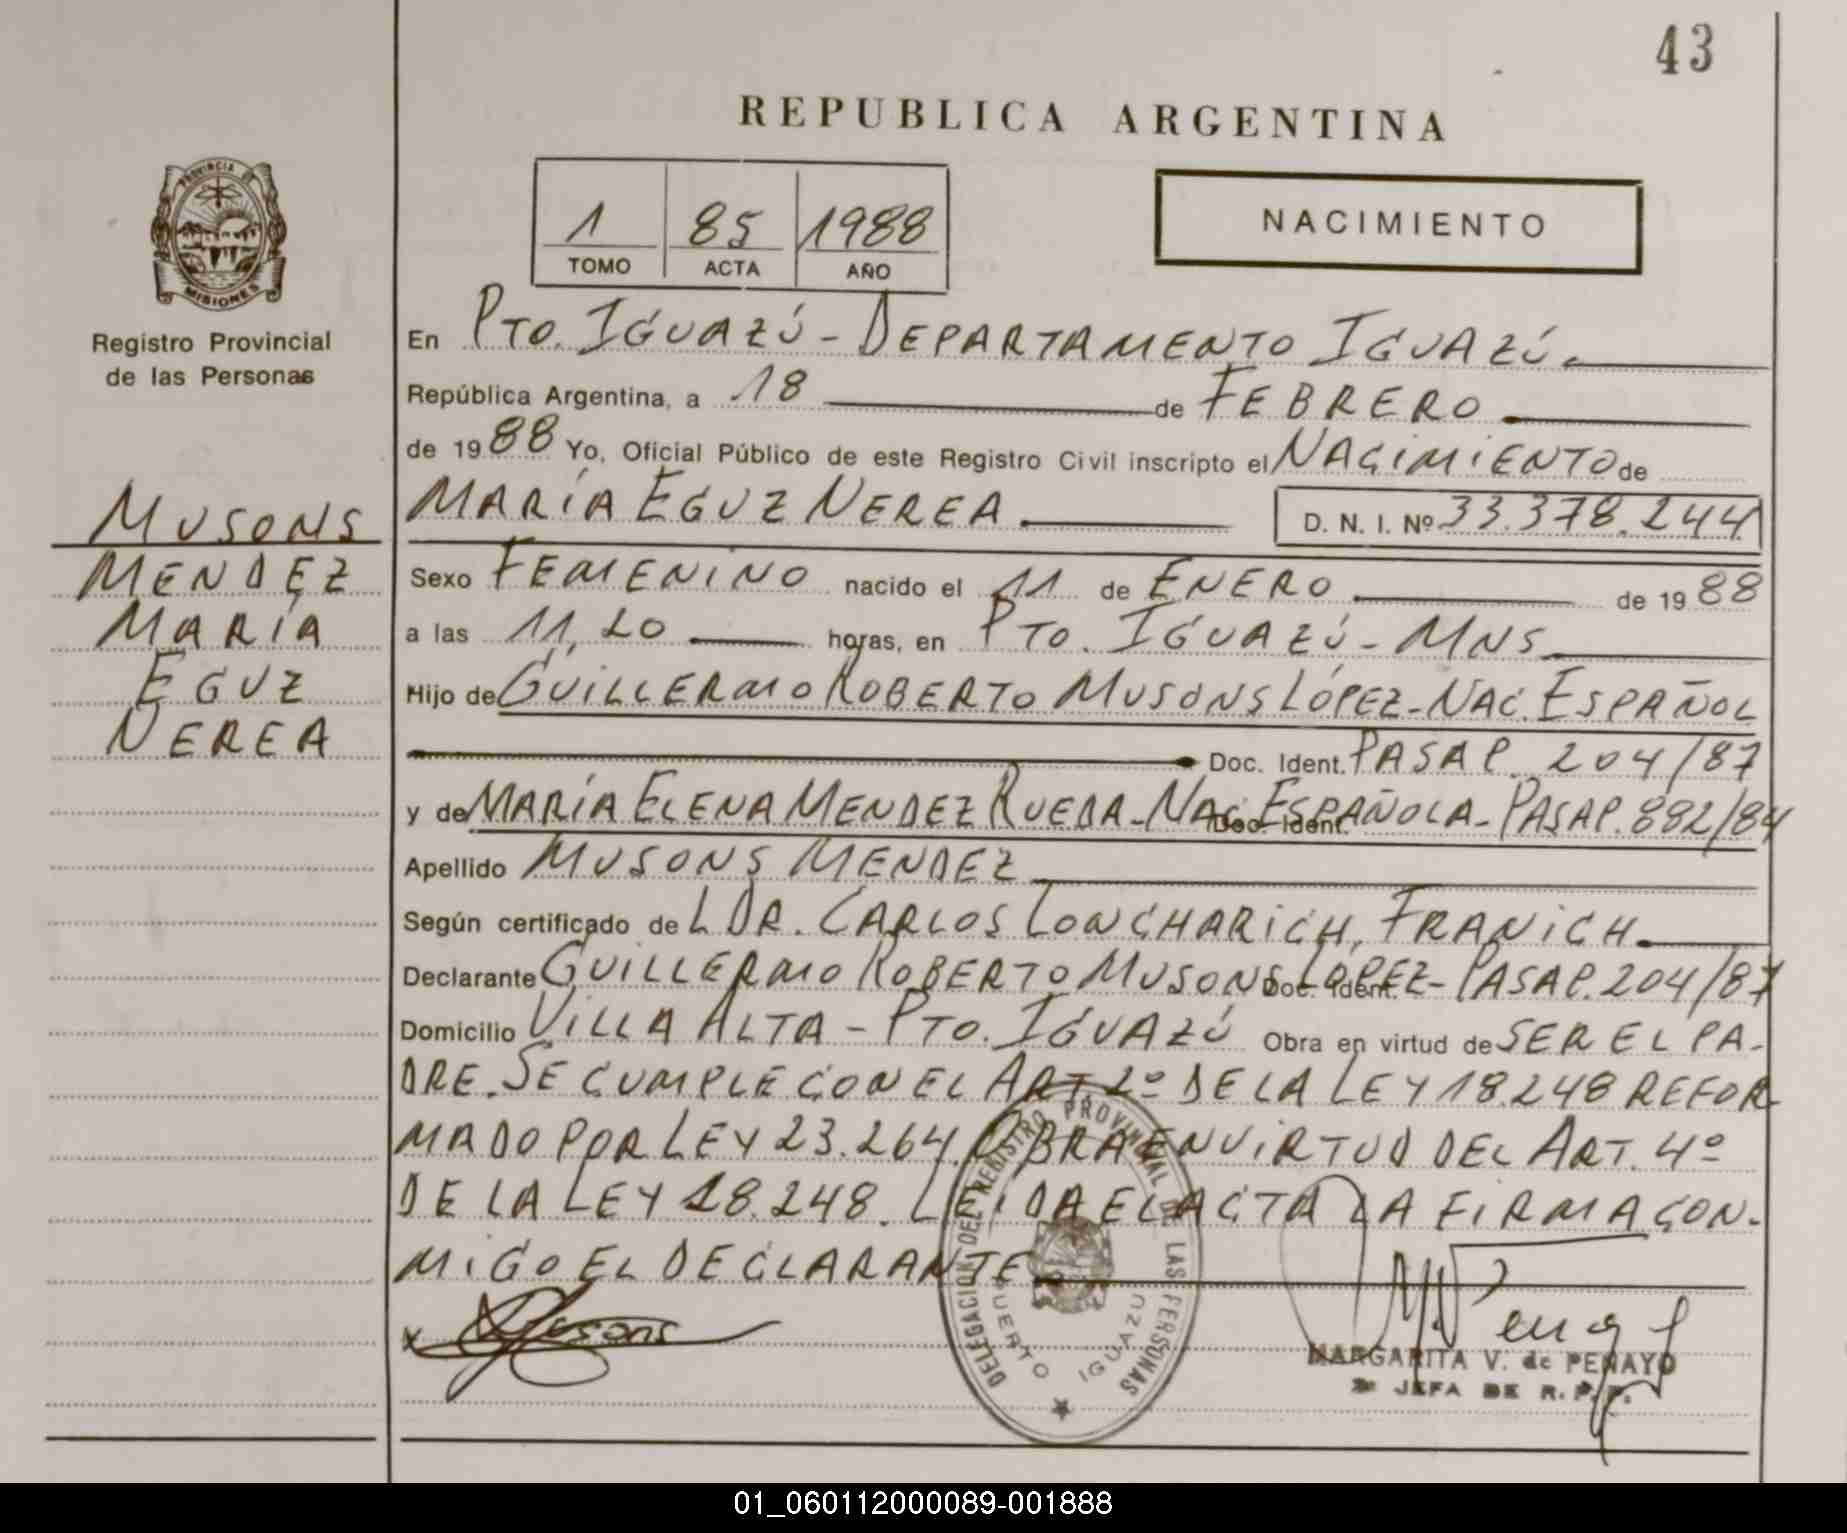 43
REPUBLICA ARGENTINA
PROVINCIA DE
MISIONES
Registro Provincial
de las Personas
1 85 1988
TOMO ACTA AÑO
NACIMIENTO
MUSONS
MENDEZ
MARÍA
EGUZ
NEREA
En PTO. IGUAZÚ - DEPARTAMENTO IGUAZÚ.
República Argentina, a 18 de FEBRERO
de 1988 Yo, Oficial Público de este Registro Civil inscripto el NACIMIENTO de
MARÍA EGUZ NEREA D. N. I. Nº 33.378.244
Sexo FEMENINO nacido el 11 de ENERO de 1988
a las 11,20 horas, en PTO. IGUAZÚ - MNS
Hijo de GUILLERMO ROBERTO MUSONS LÓPEZ - NAC. ESPAÑOL
Doc. Ident. PASAP. 204/87
y de MARÍA ELENA MENDEZ RUEDA - NAC. ESPAÑOLA - PASAP. 882/84
Doc. Ident.
Apellido MUSONS MENDEZ
Según certificado de L DR. CARLOS CONCHARICH, FRANICH
Declarante GUILLERMO ROBERTO MUSONS LÓPEZ - Doc. Ident. PASAP. 204/87
Domicilio VILLA ALTA - PTO. IGUAZÚ Obra en virtud de SER EL PA-
DRE. SE CUMPLE CON EL ART. 2º DE LA LEY 18.248 REFOR-
MADO POR LEY 23.264. OBRA EN VIRTUD DEL ART. 4º
DE LA LEY 18.248. LEIDA EL ACTA LA FIRMA CON-
MIGO EL DECLARANTE
x Musons
DELEGACION DEL REGISTRO PROVINCIAL DE LAS PERSONAS
PUERTO IGUAZU
MARGARITA V. de PENAYO
JEFA DE R. P. P.
01_060112000089-001888